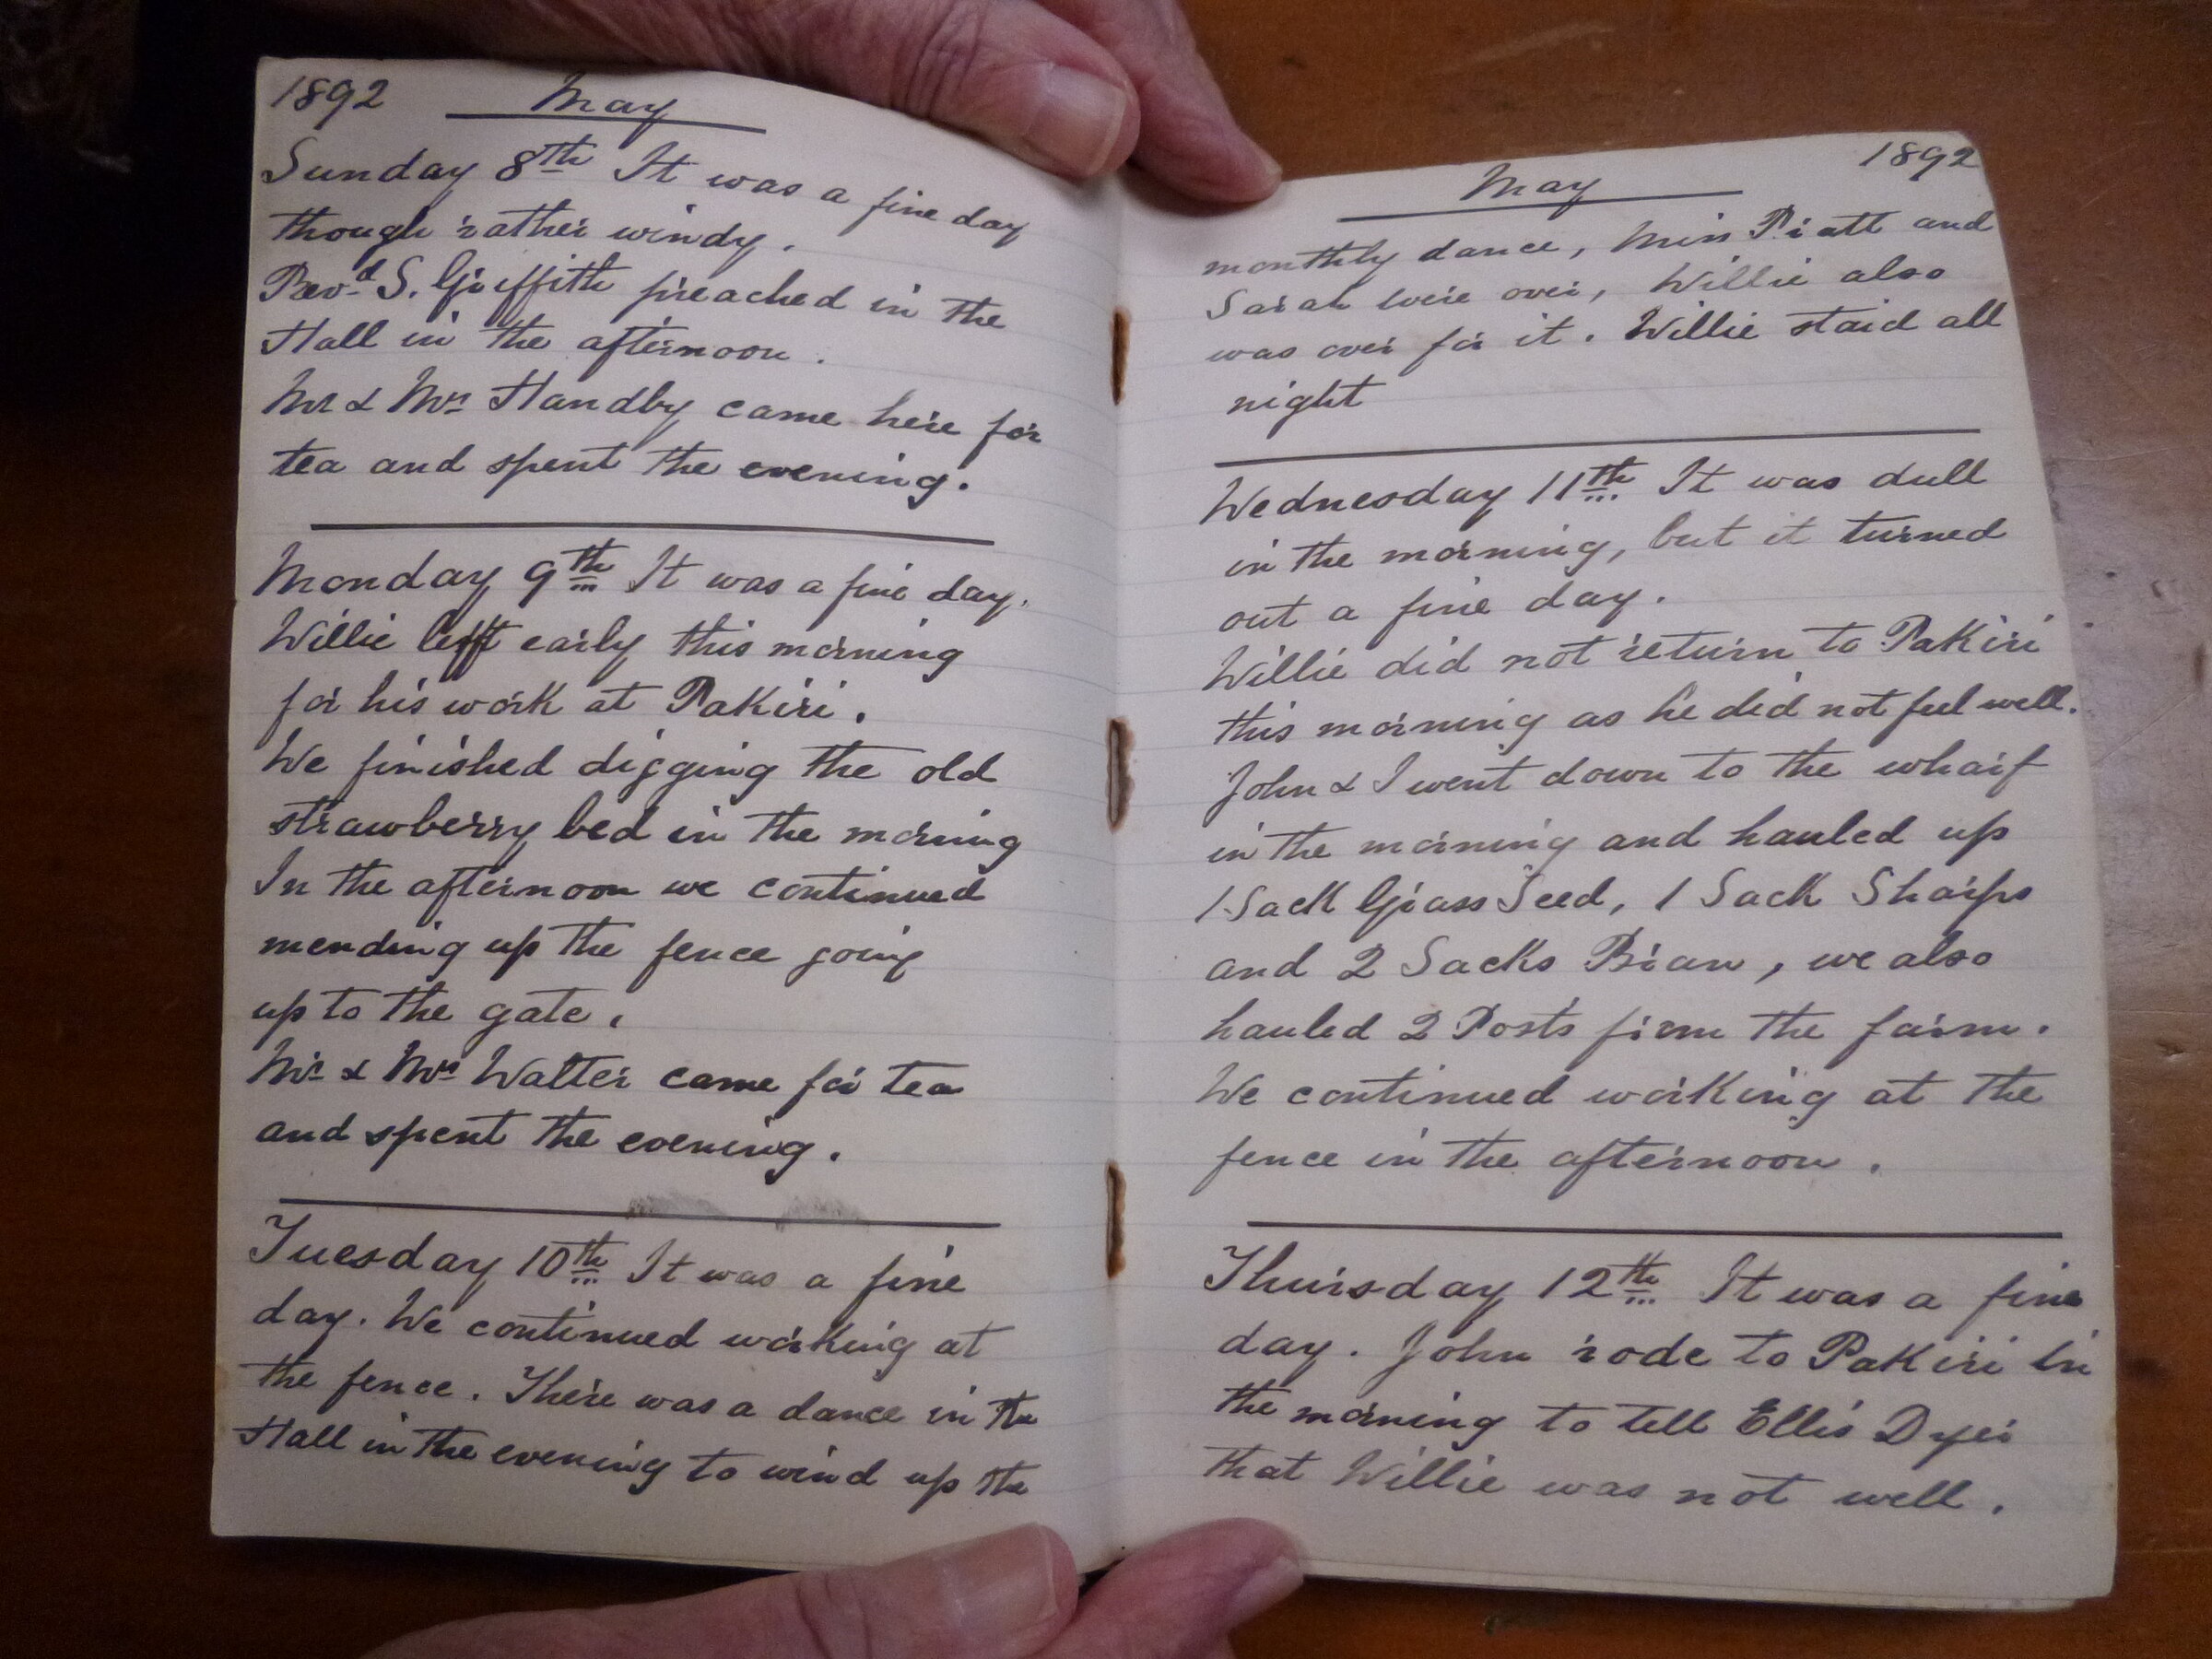 1892 May
Sunday 8th It was a fine day
though rather windy.
Revd S. Griffith preached in the
Hall in the afternoon.
Mr & Mrs Handby came here for
tea and spent the evening.
Monday 9th It was a fine day.
Willie left early this morning
for his work at Pakiri.
We finished digging the old
strawberry bed in the morning
In the afternoon we continued
mending up the fence going
up to the gate.
Mr & Mrs Walter came for tea
and spent the evening.
Tuesday 10th It was a fine
day. We continued working at
the fence. There was a dance in the
Hall in the evening to wind up the
May 1892
monthly dance, Miss Pratt and
Sarah were over, Willie also
was over for it. Willie staid all
night
Wednesday 11th It was dull
in the morning, but it turned
out a fine day.
Willie did not return to Pakiri
this morning as he did not feel well.
John & I went down to the wharf
in the morning and hauled up
1 Sack Grass Seed, 1 Sack Sharps
and 2 Sacks Bran, we also
hauled 2 Posts from the farm.
We continued working at the
fence in the afternoon.
Thursday 12th It was a fine
day. John rode to Pakiri in
the morning to tell Ellis Dyer
that Willie was not well.